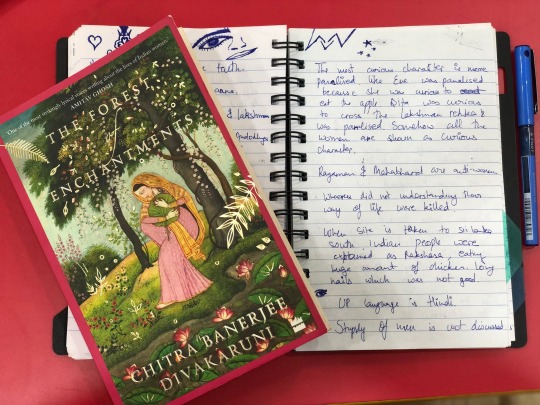 One of the most strikingly lyrical voices writing about the lives of Indian women
AMITAV GHOSH
THE FOREST
OF
ENCHANTMENTS
CHITRA BANERJEE
DIVAKARUNI
faith.
& lakshman
The most curious character is more
penalised like Eve was penalised
because she was curious to
eat the apple Sita was curious
to cross the lakshman rekha &
was penalised Somehow all the
women are shown as curious
character.
Ramayan & Mahabharat are anti-women
Whoever did not understanding their
way of life were killed
When Sita is taken to Sri lanka
South Indian people were
explained as Rakshasa, eating
huge amount of chicken long
nails which was not good.
UP language is Hindi
of men is not discussed